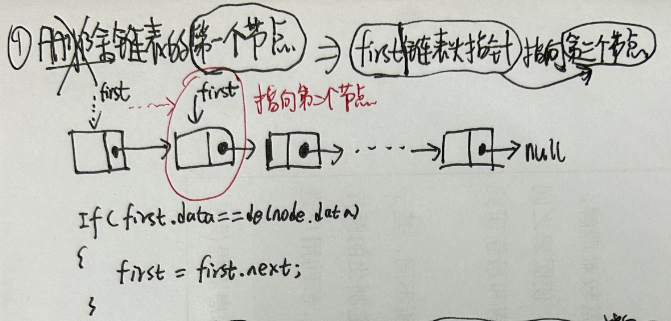 ① 删除链表的第一个节点 ⇒ first链表头指针 指向第二个节点
first first 指向第二个节点
null
If( first.data==delnode.data)
{
first = first.next;
}